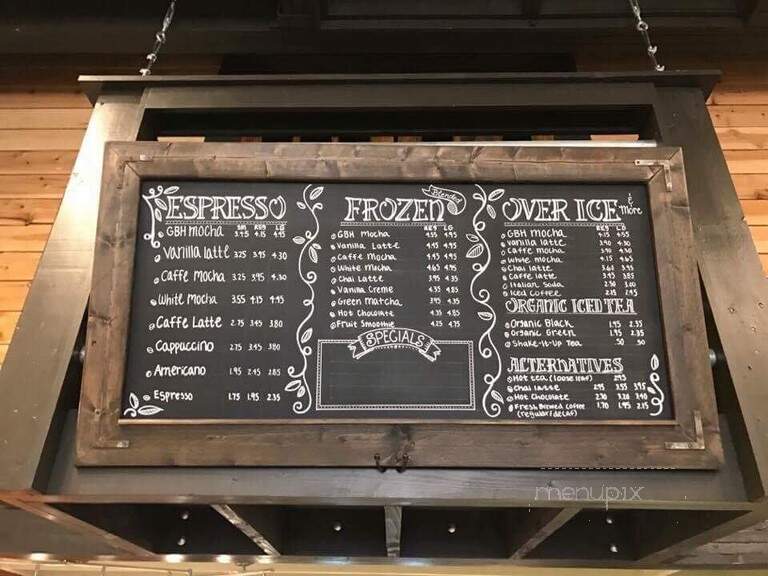 ESPRESSO
SM REG LG
GBH Mocha 3.45 4.15 4.95
Vanilla Latte 3.25 3.95 4.30
Caffe Mocha 3.25 3.95 4.30
White Mocha 3.55 4.15 4.95
Caffe Latte 2.75 3.45 3.80
Cappuccino 2.75 3.45 3.80
Americano 1.95 2.45 2.85
Espresso 1.75 1.95 2.35
Blended
FROZEN
REG LG
GBH Mocha 4.55 4.95
Vanilla Latte 4.45 4.95
Caffe Mocha 4.45 4.95
White Mocha 4.65 4.95
Chai Latte 3.95 4.35
Vanilla Creme 4.35 4.85
Green Matcha 3.95 4.35
Hot Chocolate 4.35 4.85
Fruit Smoothie 4.25 4.75
SPECIALS
OVER ICE & More
REG LG
GBH Mocha 4.15 4.55
Vanilla Latte 3.90 4.30
Caffe Mocha 3.90 4.30
White Mocha 4.15 4.65
Chai Latte
Caffe Latte 3.45 3.85
Italian Soda
Iced Coffee 2.15 2.45
ORGANIC ICED TEA
Organic Black 1.95 2.35
Organic Green 1.95 2.35
Shake-It-Up Tea .50 .50
ALTERNATIVES
Hot Tea (loose leaf) 2.45
Chai Latte 2.95 3.55 3.95
Hot Chocolate 2.70 3.20 3.40
Fresh Brewed Coffee 1.70 1.95 2.15
(regular/decaf)
menupix